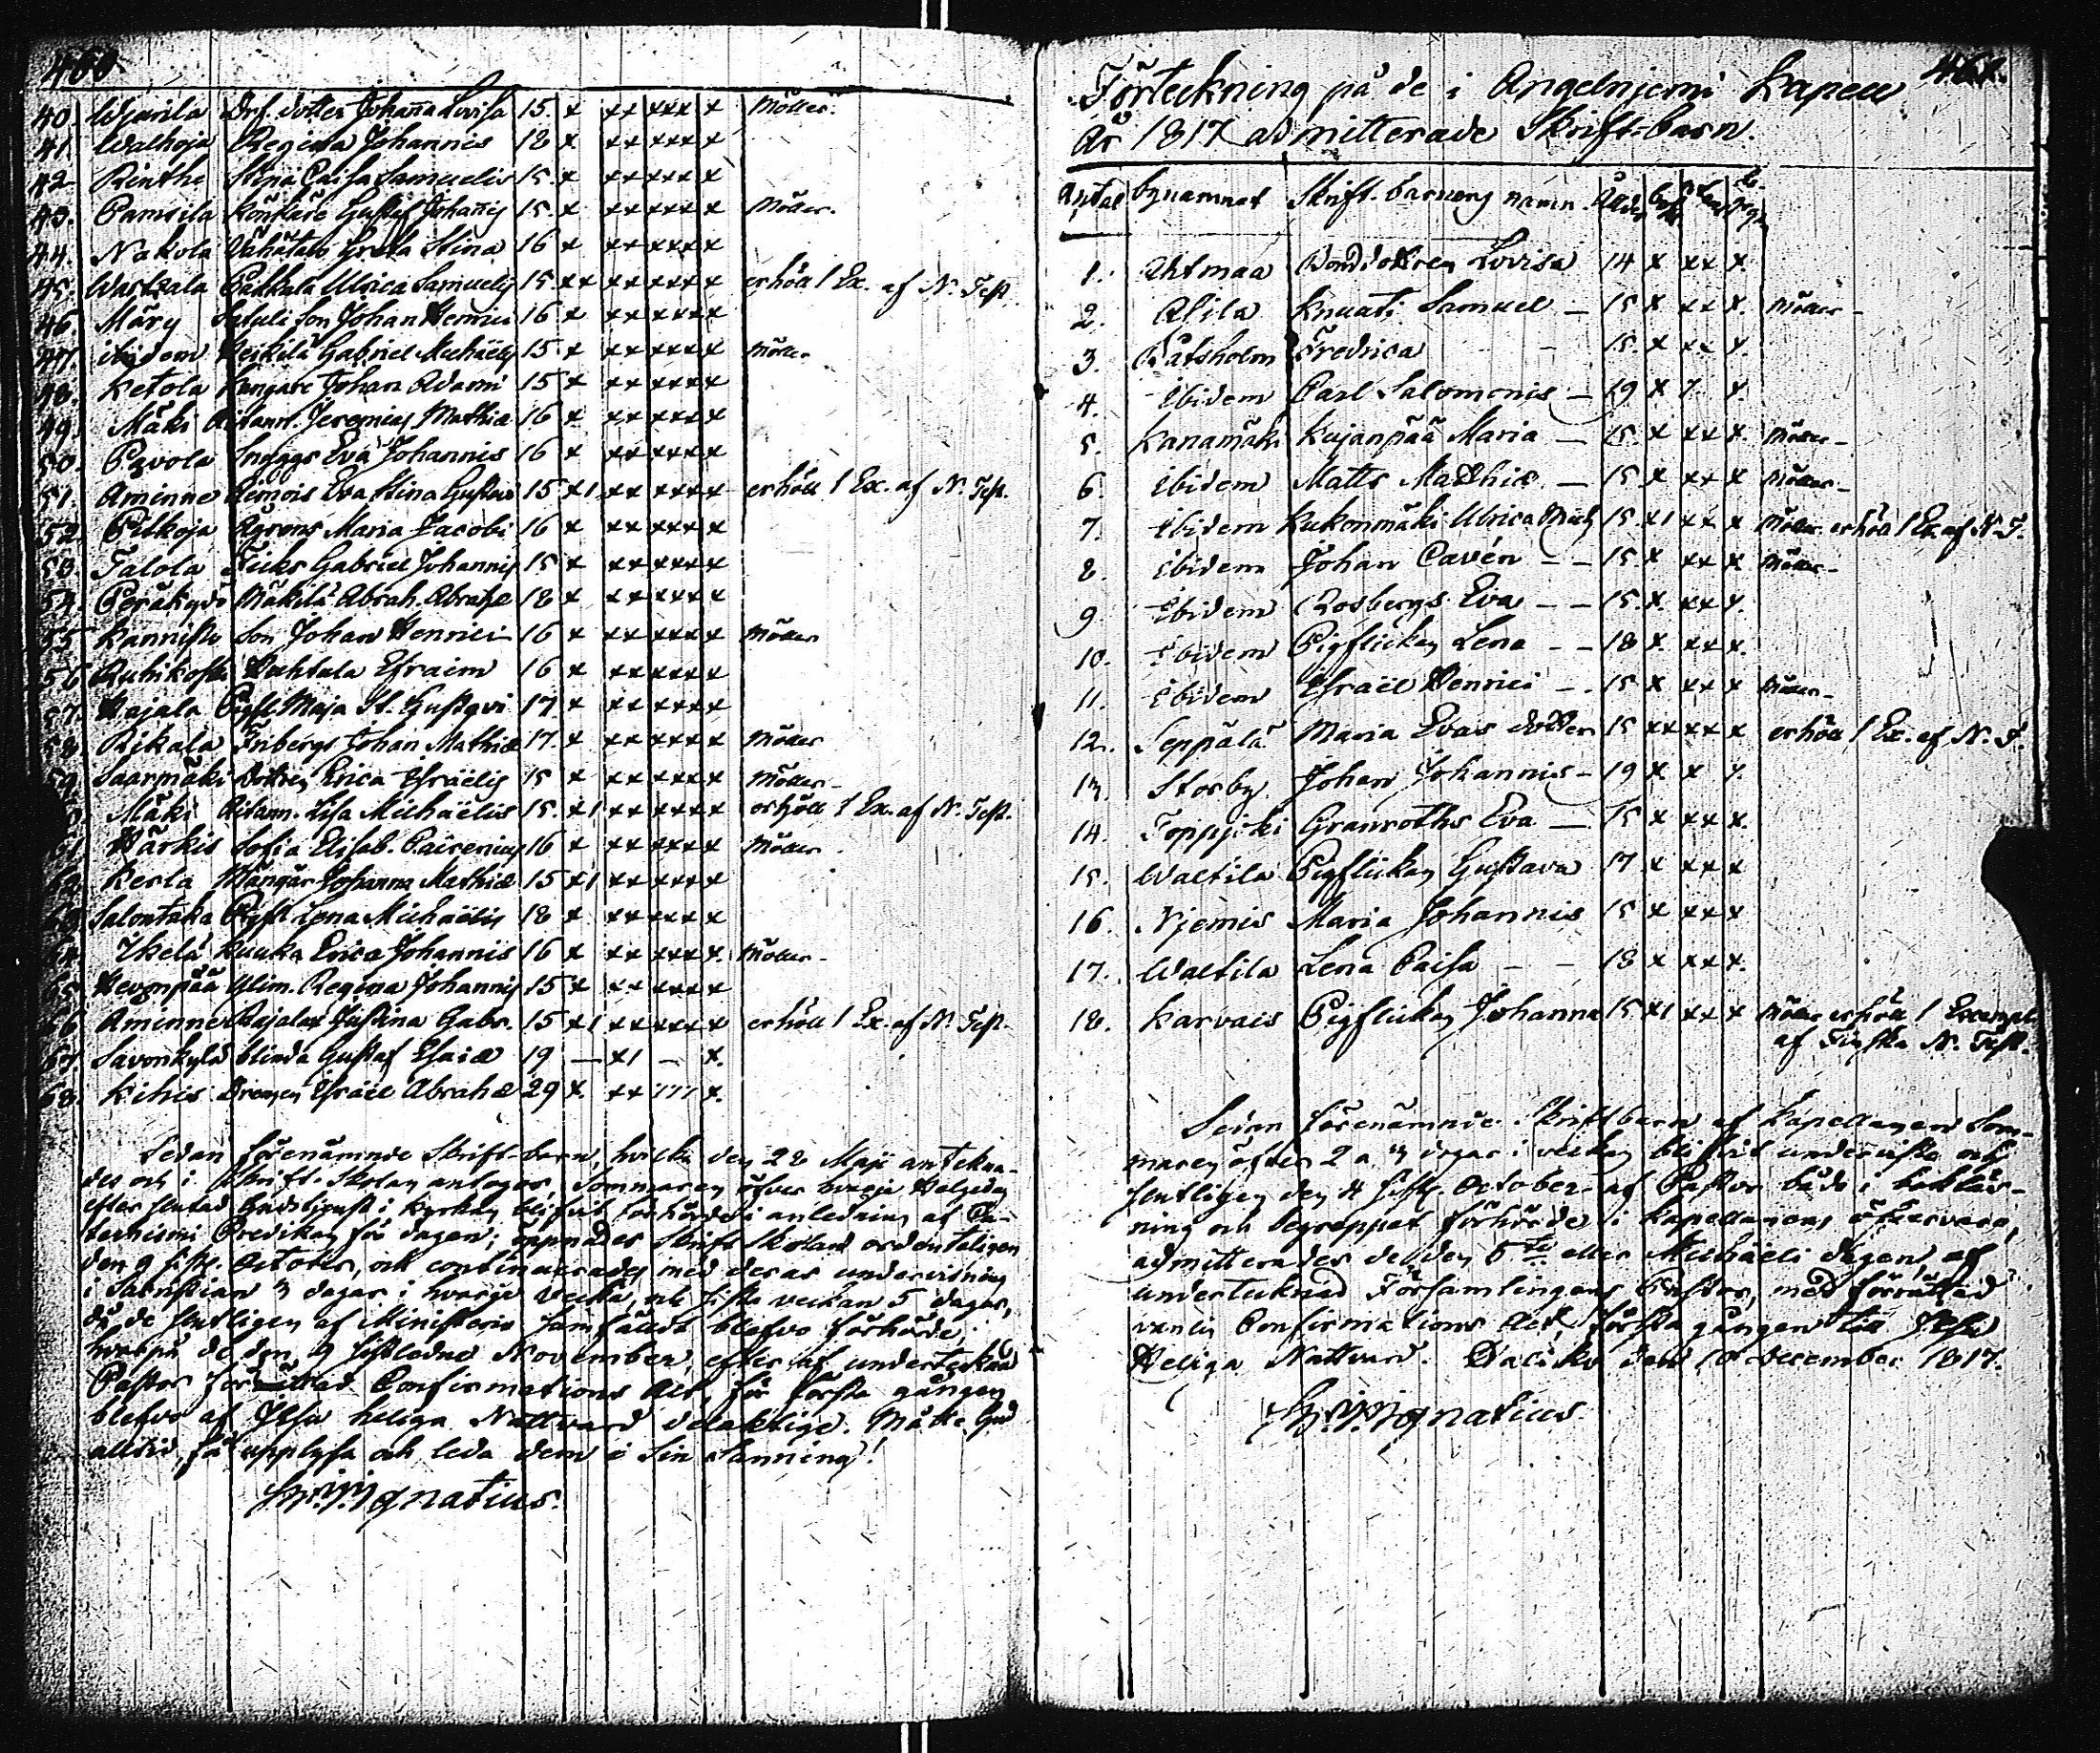 460.
40. Wjurila Drf. dotter Johanna Lovisa 15. x xx xxx x Möller.
41. Walhoja Regina Johannis 18 x xx xxx x
42. Rinthe Stina Caisa Samuelis 15. x xx xxx x
43. Pamsila Gustaf Johannis 15. x xx xxx x Möller.
44. Nakola Vähätalo Greta Stina 16 x xx xxx x
45. Wartsala Pakkala Ulrica Samuelis 15 xx xx xxx x erhöll 1 Ex. af N. Test.
46. Märy son Johan Henrici 16 x xx xxx x
47. ibidem Heikilä Gabriel Michaëlis 15 x xx xxx x Möller
48. Ketola Kangare Johan Adami 15 x xx xxx x
49. Mäki Jeremias Mathiæ 16 x xx xxx x
50. Pavola Snuggs Eva Johannis 16 x xx xxx x
51. Aminne Eva Stina Gustavi 15 x1 xx xxx x erhöll 1 Ex. af N. Test.
52. Pitkoja Ågrens Maria Jacobi 16 x xx xxx x
53. Talola Gabriel Johannis 15 x xx xxx x
54. Peräkylä Mäkilä Abrah. Abrahæ 18 x xx xxx x
55 Kannisto Son Johan Henrici 16 x xx xxx x Möller
56 Ruhikoski Huhtala Efraim 16 x xx xxx x
57. Hajala Pigfl. Maja St. Gustavi 17. x xx xxx x
58. Rikala Fribergs Johan Mathiæ 17. x xx xxx x Möller
59. Saarmäki Dottren Erica Israëlis 15 x xx xxx x Möller-
Mäki Lisa Michaëlis 15. x1 xx xxx x erhöll 1 Ex. af N. Test.
Härkis Sofia Elisab. 16 x xx xxx x Möller
Kerla Johanna Mathiæ 15 x1 xx xxx x
Salontaka Pigfl. Lena Michaëlis 18 x xx xxx x
Ihelä Kuuka Erica Johannis 16 x xx xxx x. Möller-
Hevonpää Regina Johannis 15 x xx xxx x
Aminne Rajalax Justina Gabr. 15 x1 xx xxx x erhöll 1 Ex. af N. Test.
67. Savonkylä blinda Gustaf Esaiæ 19 — x1 — x.
68. Kihis Drengen Israël Abrahæ 29 x. xx 111 x.
Sedan förenämnde Skrift-barn, hvilka den 28 Maji antekna-
des och i Skrift-Skolan antogos, Sommaren öfver hvarje Helgedag
efter slutad Gudstjenst i kyrkan blifvit förhörde i anledning af Ca-
techismi Predikan för dagen; öppnades Skrift Skolan ordenteligen
den 9 sistl. October, och continuerades med deras undervisning
i Sakristian 3 dagar i hvarje vecka, och sista veckan 5 dagar,
då de slutligen af Ministerio samfäldt blefvo förhörde;
hvarpå de den 9 sistledne November, efter af undertecknad
Pastor förrättad Confirmations Act, för första gången
blefvo af Jesu heliga Nattvard delaktige. Måtte Gud
alltid få upplysa och leda dem i Sin sanning!
Ignatius.
461.
Förteckning på de i Angelnjemi Kapell
år 1817 admitterade Skrift-barn.
Antal bynamnet Skrift-barnens namn. Ålder
1. Ahtmaa Bonddottren Lovisa 14 x xx x.
2. Alila Knuuti Samuel — 15 x xx x. Möller-
3. Båtsholm Fredrica - 15. x xx x.
4. Ibidem Carl Salomonis — 19 x x. x.
5. Kanamäki Kujanpää Maria — 15. x xx x. Möller-
6. Ibidem Matts Mathiæ — 15. x xx x Möller-
7. Ibidem Kukonmäki Ulrica Math 15. x1 xx x Möller erhöll 1 Ex. af N. T.
8. Ibidem Johan Cavén — — 15. x xx x Möller-
9. Ibidem Rosbergs Eva — — 15. x. xx x.
10. Ibidem Pigflickan Lena — — 18 x. xx x.
11. Ibidem Israël Henrici — . 15 x xx x Möller-
12. Seppälä Maria Evas dotter 15 xx xx x erhöll 1 Ex. af N. T.
13. Storby Johan Johannis — 19 x x x.
14. Toppjoki Granroths Eva — 15 x xx x.
15. Waltila Pigflickan Gustava 17 x xx x
16. Njemis Maria Johannis 15 x xx x
17. Waltila Lena Caisa — — 18 x xx x.
18. Karvais Pigflickan Johanna 15 x1 xx x Möller erhöll 1 Exempl.
af Finska N. Test.
Sedan förenämnde Skriftbarn af Kapellanen Som-
maren öfver 2 a 3 dagar i veckan blifvit underviste och
slutligen den 4 sistl. October af Pastor både i boklär-
ning och begreppet förhörde i Kapellanens öfvervaro,
admitterades de den 5te eller Michaëli dagen, af
undertecknad Församlingens Pastor, med förrättad
vanlig Confirmations Act, första gången till Jesu
Heliga Nattvard. Haliko den 10 December 1817.
Ignatius.